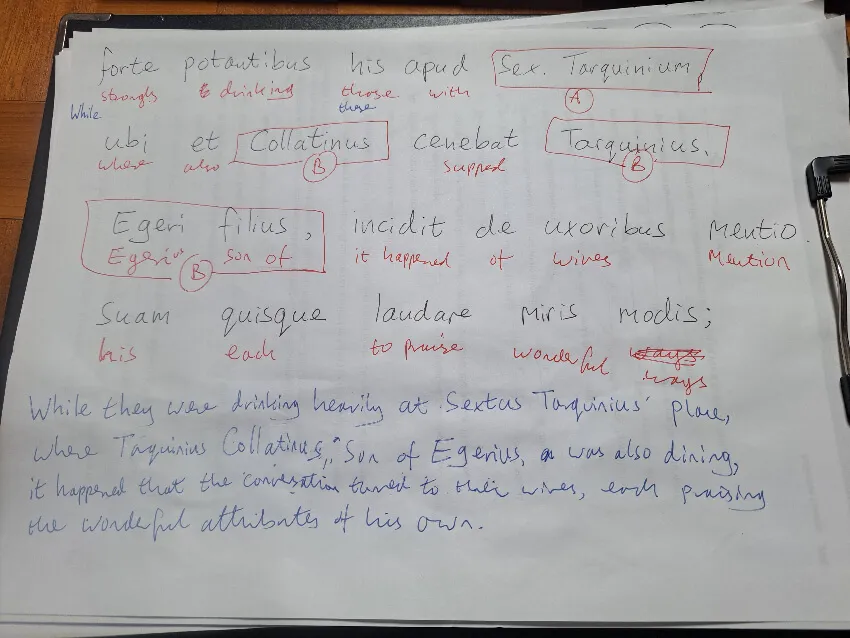 forte potautibus his apud Sex. Tarquinium,
strongly & drinking those with
While these A
ubi et Collatinus cenebat Tarquinius,
where also B supped B
Egeri filius, incidit de uxoribus mentio
Egerius B son of it happened of wives Mention
suam quisque laudare miris modis;
his each to praise wonderful ways
ways
While they were drinking heavily at Sextus Tarquinius' place,
where Tarquinius Collatinus, Son of Egerius, was also dining,
it happened that the conversation turned to their wives, each praising
the wonderful attributes of his own.